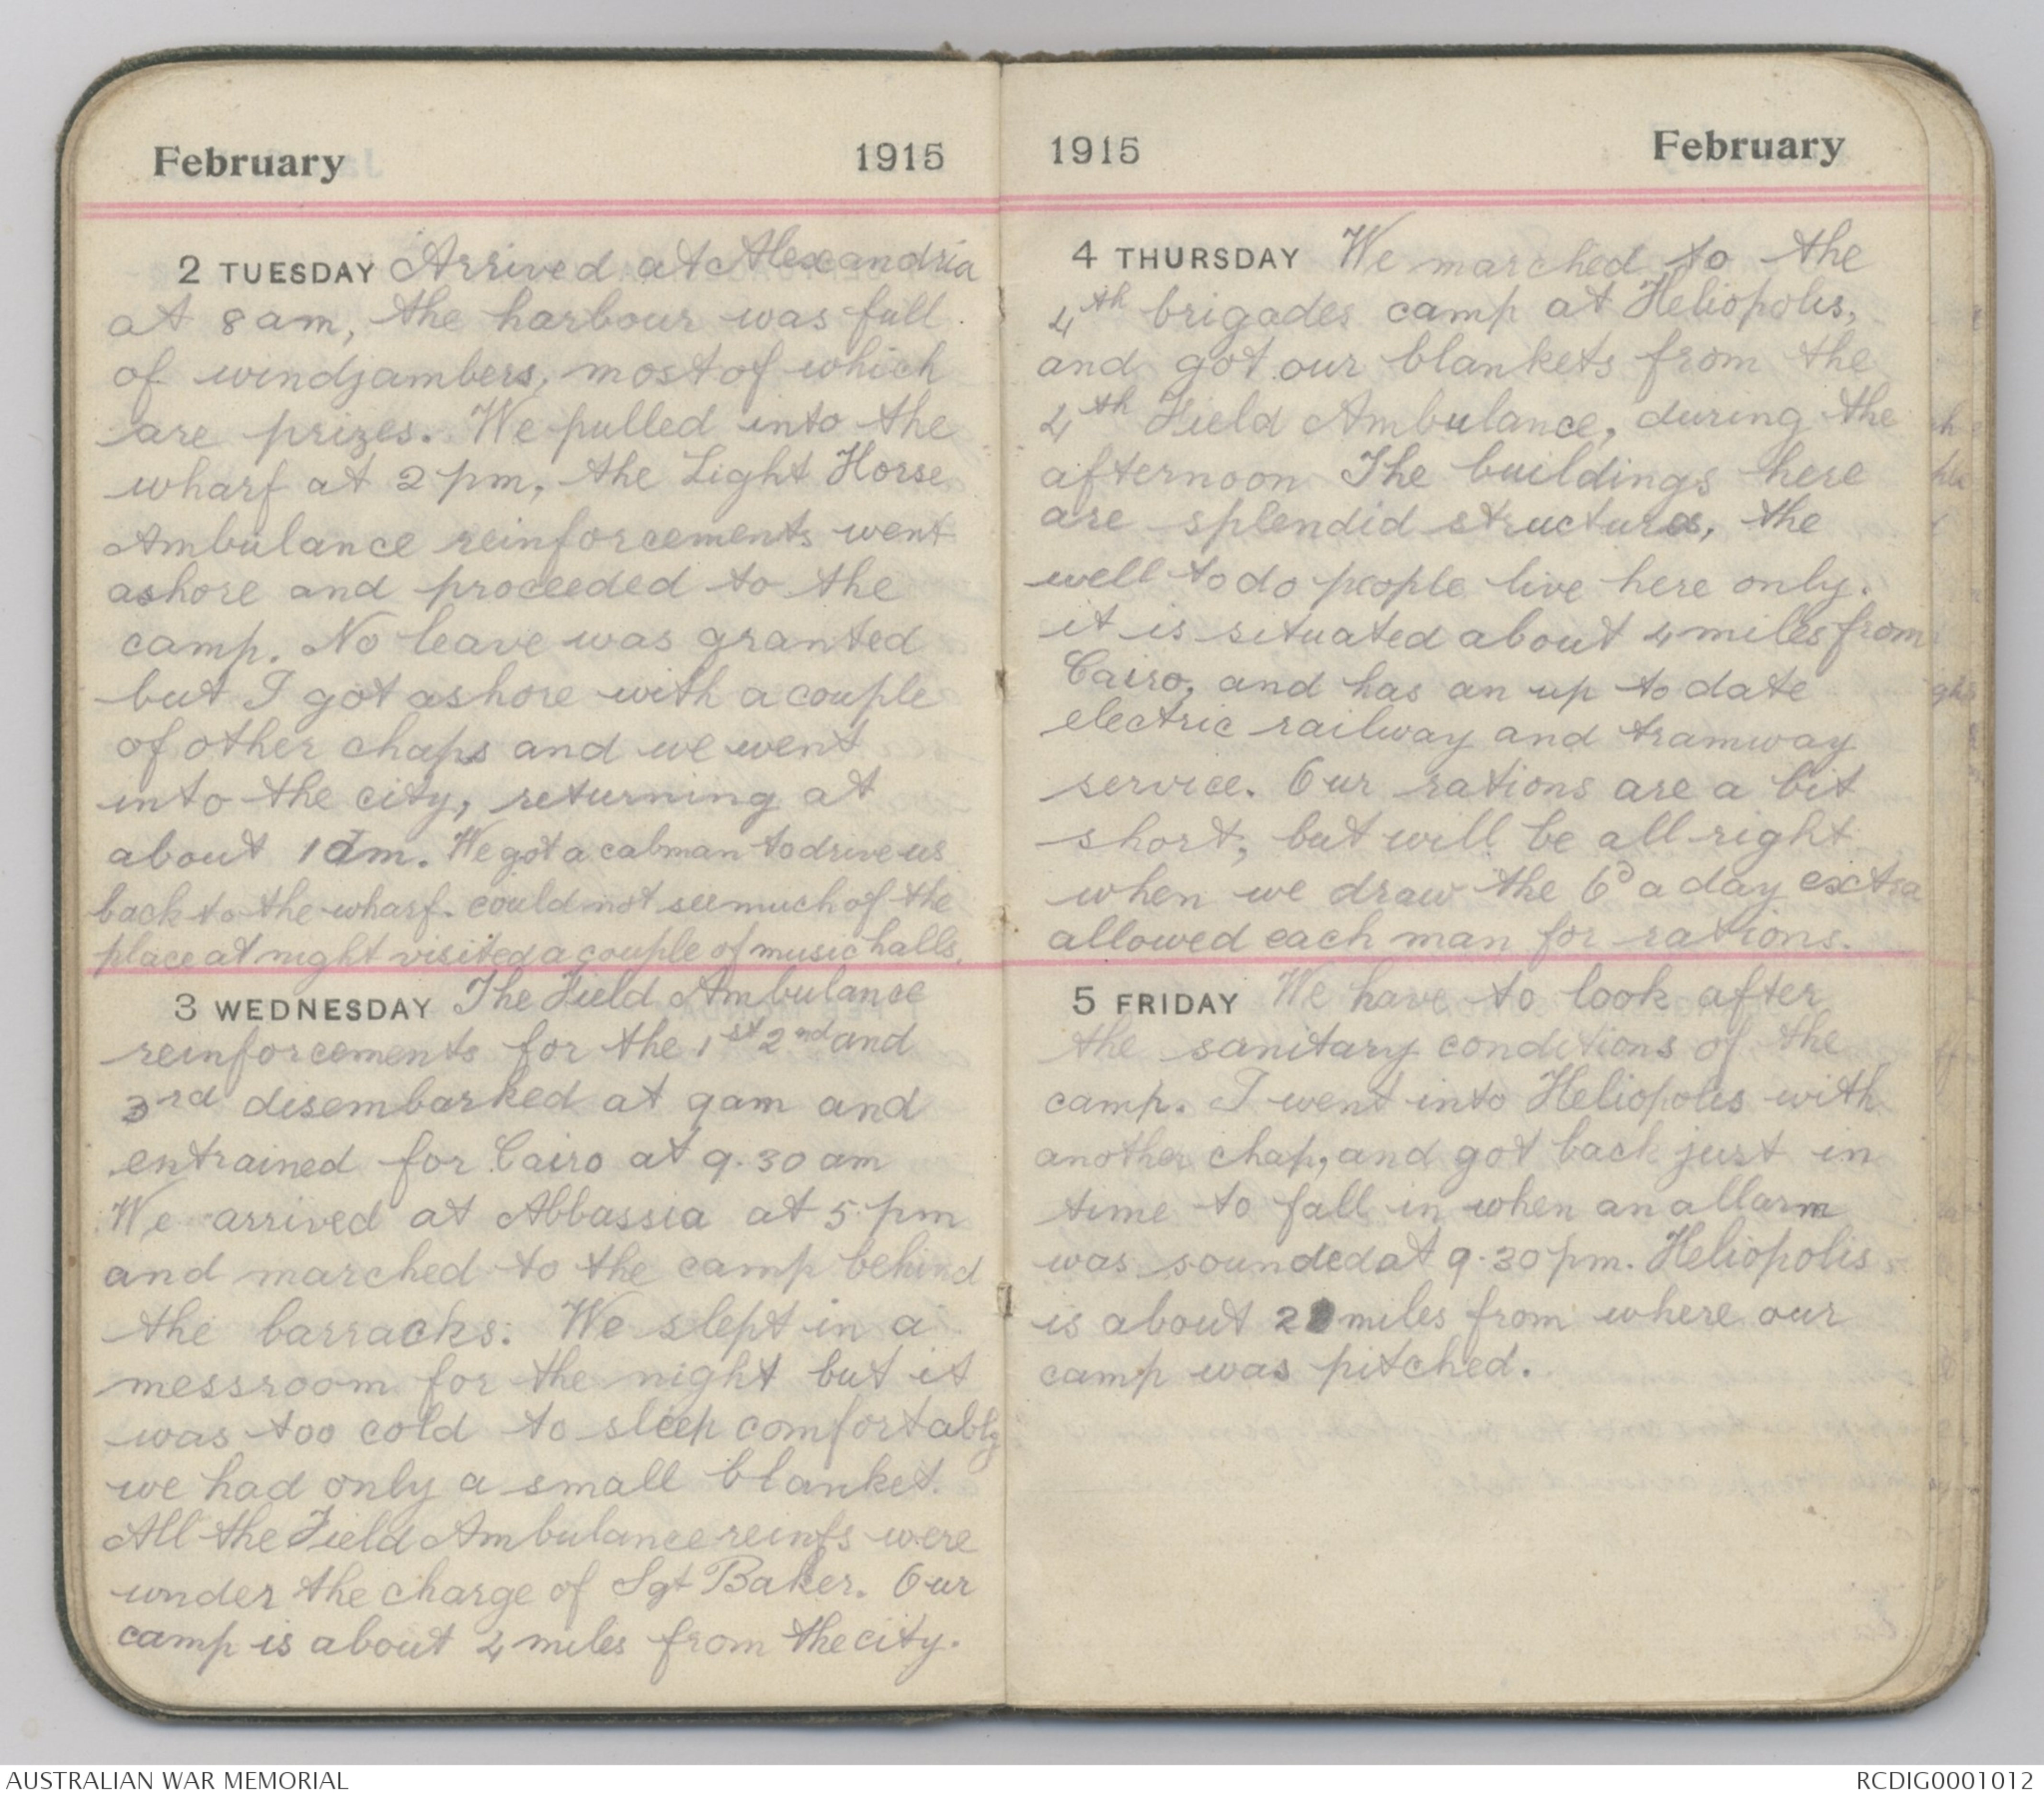 February 1915
2 TUESDAY Arrived at Alexandria
at 8 am, the harbour was full
of windjambers, most of which
are prizes. We pulled into the
wharf at 2 pm, the Light Horse
Ambulance reinforcements went
ashore and proceeded to the
camp. No leave was granted
but I got ashore with a couple
of other chaps and we went
into the city, returning at
about 1 am. We got a cabman to drive us
back to the wharf. could not see much of the
place at night visited a couple of music halls.
3 WEDNESDAY The Field Ambulance
reinforcements for the 1st 2nd and
3rd disembarked at 9am and
entrained for Cairo at 9.30 am
We arrived at Abbassia at 5 pm
and marched to the camp behind
the barracks. We slept in a
messroom for the night but it
was too cold to sleep comfortably
we had only a small blanket.
All the Field Ambulance reinfs were
under the charge of Sgt Baker. Our
camp is about 4 miles from the city.
1915 February
4 THURSDAY We marched to the
4th brigades camp at Heliopolis,
and got our blankets from the
4th Field Ambulance, during the
afternoon The buildings here
are splendid structures, the
well to do people live here only.
it is situated about 4 miles from
Cairo, and has an up to date
electric railway and tramway
service. Our rations are a bit
short, but will be all right
when we draw the 6D a day extra
allowed each man for rations.
5 FRIDAY We have to look after
the sanitary conditions of the
camp. I went into Heliopolis with
another chap, and got back just in
time to fall in when an allarm
was sounded at 9.30 pm. Heliopolis
is about 2 miles from where our
camp was pitched.
AUSTRALIAN WAR MEMORIAL RCDIG0001012